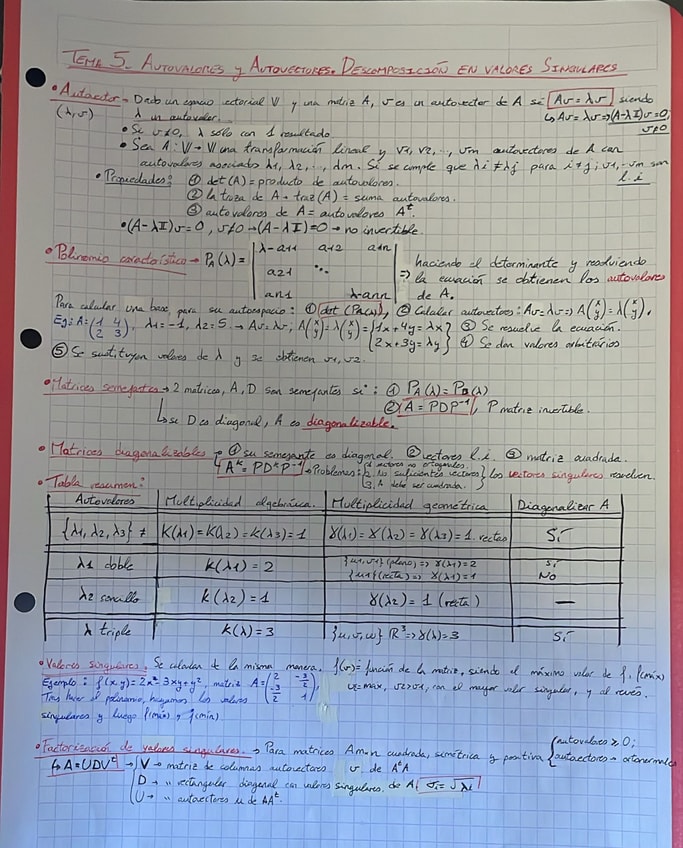 TEMA 5_ AUTOVALORES y AUTOVECTORES. DESCOMPOSICIÓN EN VALORES SINGULARES
• Autovector → Dado un espacio vectorial V y una matriz A, v es un autovector de A si Av = λv siendo
(λ, v) λ un autovalor. ↳ Av = λv ⇒ (A-λI)v = 0, v≠0
• Si v≠0, λ solo con 1 resultado
• Sea A: V → V una transformación lineal y v1, v2, ..., vm autovectores de A con
autovalores asociados λ1, λ2, ..., λm. Si se cumple que λi ≠ λj para i ≠ j, v1, ..., vm son
l.i
• Propiedades: ① det(A) = producto de autovalores.
② la traza de A → traz(A) = suma autovalores.
③ autovalores de A = autovalores Aᵗ.
• (A-λI)v = 0, v≠0 → (A-λI)=0 → no invertible.
• Polinomio característico → PA(λ) = | λ-a11 a12 a1n | haciendo el determinante y resolviendo
| a21 ... | ⇒ la ecuación se obtienen los autovalores
| an1 λ-ann | de A.
Para calcular una base para su autoespacio: ① det (PA(λ)), ② Calcular autovectores: Av=λv ⇒ A(x y) = λ(x y).
Ej: A = (1 4 2 3), λ1=-1, λ2=5. → Av=λv; A(x y) = λ(x y) = {1x+4y=λx 2x+3y=λy} ③ Se resuelve la ecuación.
④ Se dan valores arbitrarios
⑤ Se sustituyen valores de λ y se obtienen v1, v2.
• Matrices semejantes → 2 matrices, A, D son semejantes si: ① PA(λ) = PD(λ)
② A = PDP⁻¹, P matriz invertible.
↳ se D es diagonal, A es diagonalizable.
• Matrices diagonalizables → ① su semejante es diagonal. ② vectores l.i. ③ matriz cuadrada.
↳ Aᵏ = PDᵏP⁻¹ → Problemas: {1. vectores no ortogonales. 2. no suficientes vectores 3. A debe ser cuadrada.} los vectores singulares resuelven.
• Tabla resumen:
Autovalores | Multiplicidad algebráica. | Multiplicidad geométrica | Diagonalizar A
{λ1, λ2, λ3} ≠ | K(λ1) = K(λ2) = K(λ3) = 1 | γ(λ1) = γ(λ2) = γ(λ3) = 1. rectas | Sí
λ1 doble | K(λ1) = 2 | {u1, v1} (plano) ⇒ γ(λ1)=2 | Sí
{u1} (recta) ⇒ γ(λ1)=1 | No
λ2 sencillo | K(λ2) = 1 | γ(λ2) = 1 (recta) | —
λ triple | K(λ) = 3 | {u, v, w} R³ ⇒ γ(λ) = 3 | Sí
• Valores singulares. Se calculan de la misma manera. f(v) = función de la matriz, siendo el máximo valor de f, f(máx)
Ejemplo: f(x,y) = 2x²-3xy+y², matriz A = (2 -3/2 -3/2 1), v=max, v2>v1, con el mayor valor singular, y al revés.
Tras hacer el polinomio, hayamos los valores
singulares y luego f(máx) y f(mín)
• Factorización de valores singulares. → Para matrices Amxn cuadrada, simétrica y positiva {autovalores ≥ 0; autovectores → ortonormales
↳ A = UDVᵗ → {V → matriz de columnas autovectores v. de AᵗA
D → " rectangular diagonal con valores singulares. de A, σi = √λi
U → " autovectores u de AAᵗ.